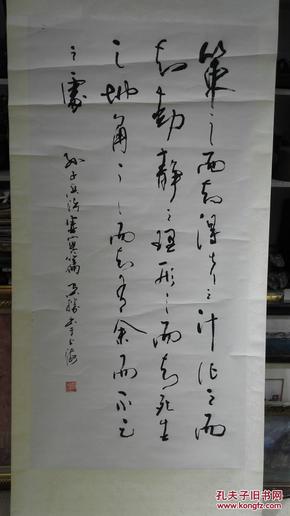 策之而知得失之计作之而
知动静之理形之而知死生
之地角之而知有余而不足
之处
孙子兵法虚实篇 书于上海
孔夫子旧书网